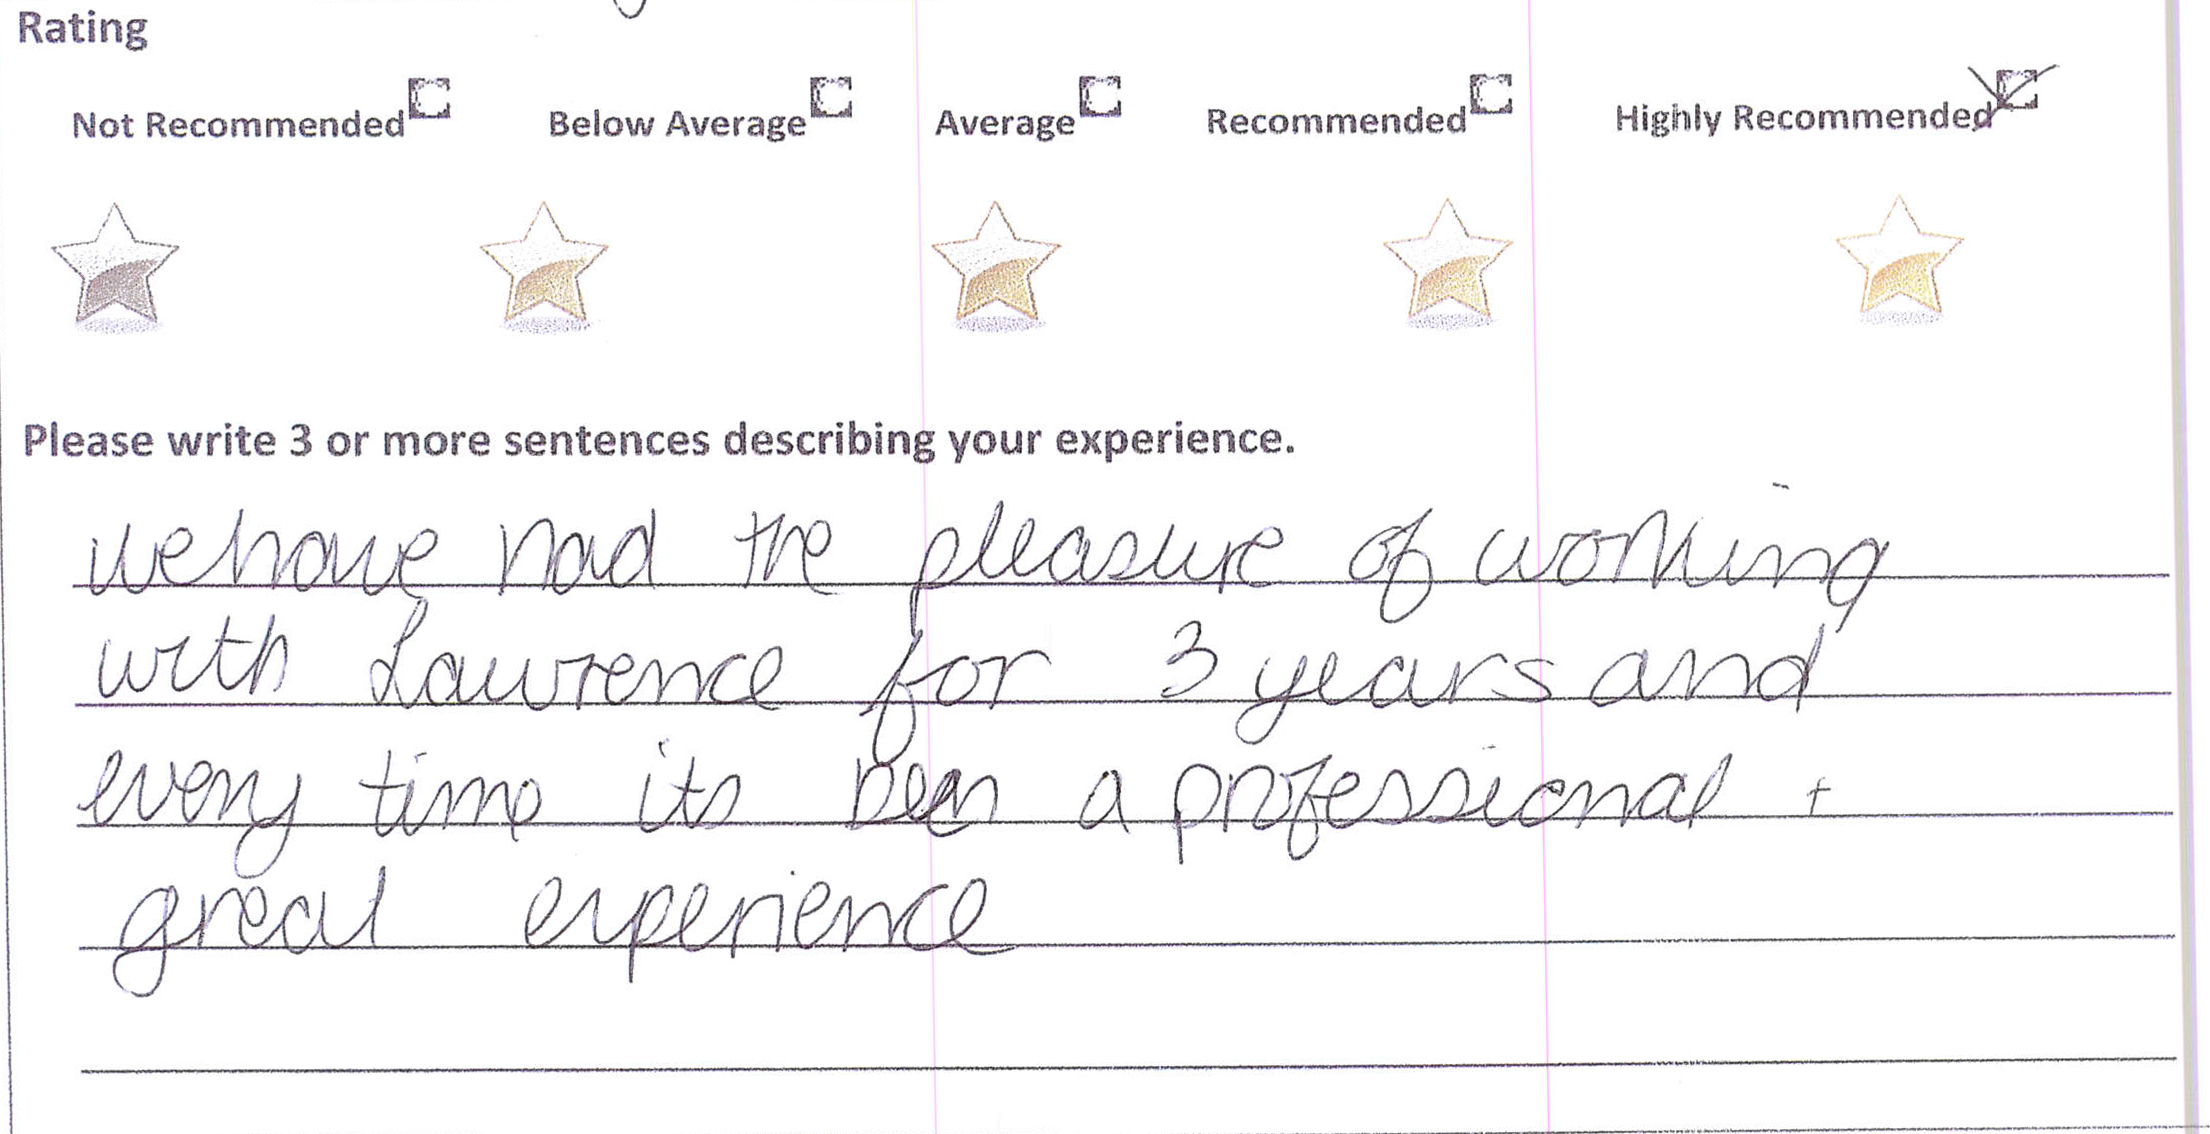 Rating
Not Recommended Below Average Average Recommended Highly Recommended
Please write 3 or more sentences describing your experience.
We have had the pleasure of working
with Lawrence for 3 years and
every time its been a professional +
great experience